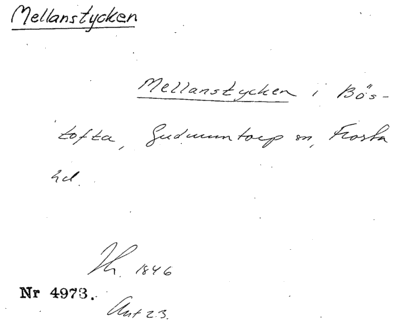 Mellanstycken
Mellanstycken i Bös-
tofta, Gudmuntorp sn, Frosta
hd.
1846
Nr 4973.
Ant 23.